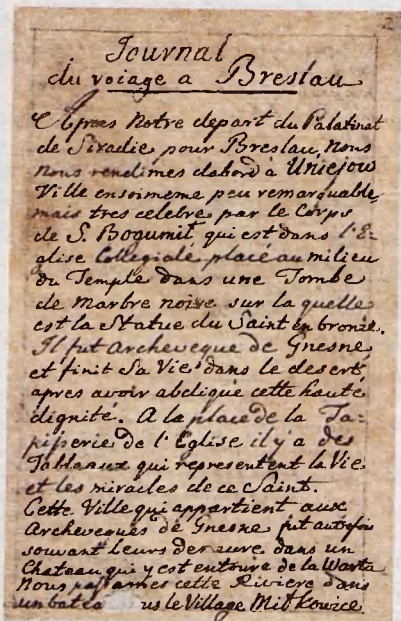 2
Journal
du voiage a Breslau
Apres Notre depart du Palatinat
de Siradie pour Breslau, Nous
Nous rendimes dabord à Uniejow
Ville ensoimeme peu remarquable
mais tres celebre par le Corps
de S. Bogumil, qui est dans l'E-
glise Collegiale placé au milieu
du Temple dans une Tombe
de Marbre noire sur la quelle
est la Statue du Saint en bronze.
Il fut Archeveque de Gnesne
et finit Sa Vie dans le desert
apres avoir abdiqué cette haute
dignité. A la place de la Ta-
pisserie de l'Eglise il y a des
Tableaux qui representent la Vie
et les miracles de ce Saint.
Cette Ville qui appartient aux
Archeveques de Gnesne fut autrefois
souvant leurs demeure, dans un
Chateau qui y est entouré de la Warta
Nous passames cette Riviere dans
un batea us le Village Mitkowice